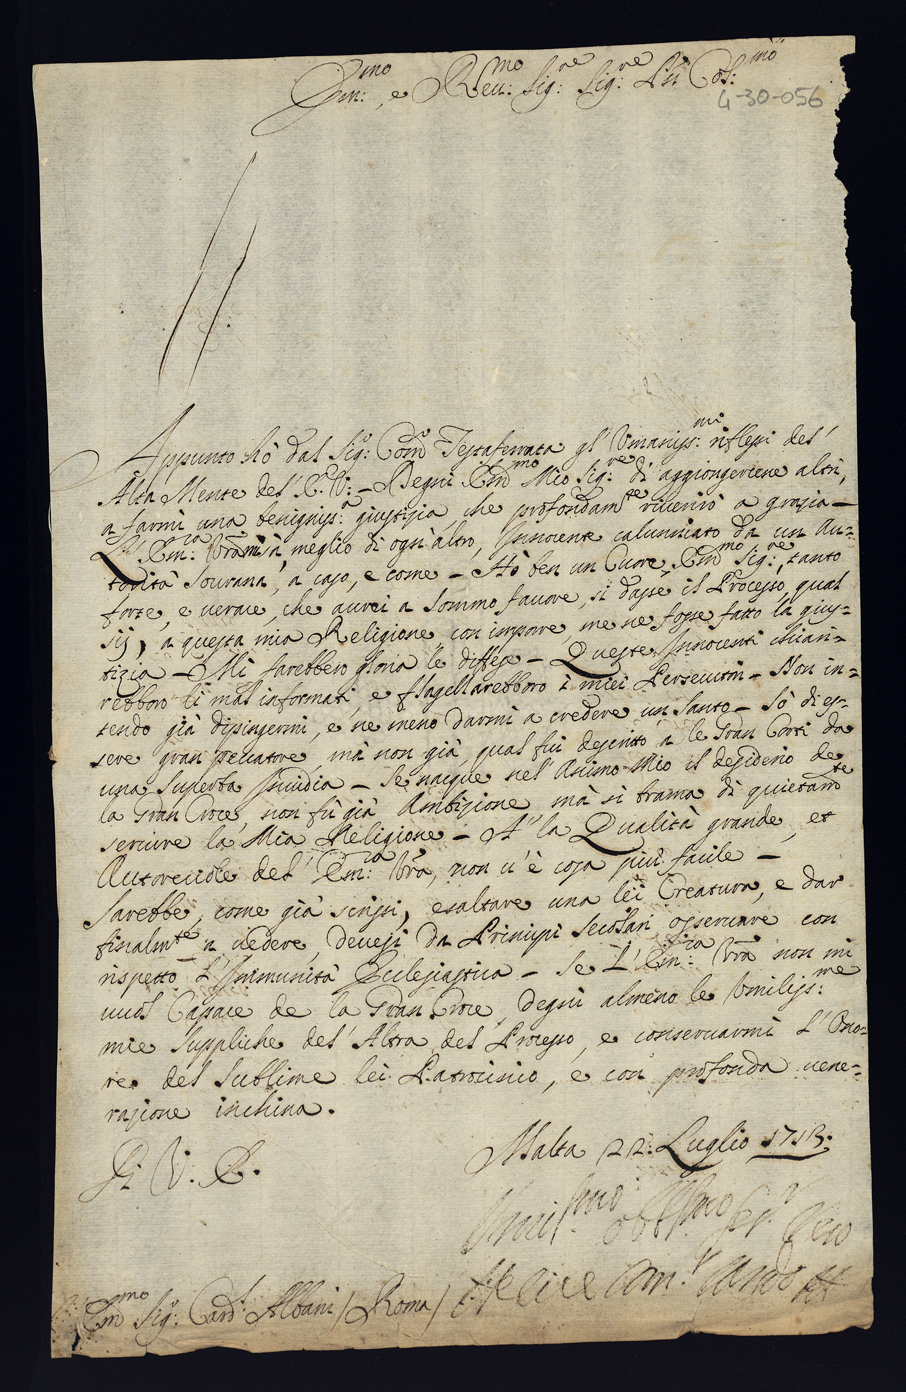 Em:mo, e Reu:mo Sig:re Sig:re Pñ Col:mo
4-30-056
Appunto hò dal Sig:r Com:r Testaferrata gl' Vmaniss:mi riflessi del'
Alta Mente del' E: V: - Degni Em̃mo Mio Sig:re di' aggiongercene altri,
a farmi una benigniss:a giustizia, che profondam:te riceuirò a grazia -
L' Em:za Vr̃a mi sà meglio di ogn'altro, Innocente calunniato da un Au-
torità Sourana, a caso, e come - Hò ben un Cuore, Em̃mo Sig:re, tanto
forte, e uerace, che aurei a sommo fauore, si dasse il Processo, qual
sij, a questa mia Religione con imporre, me ne fosse fatto la gius-
tizia - Mi sarebbero gloria le diffese - Queste Innocenti chiari-
rebboro li mal informati, e flagellarebboro i miei Persecutori - Non in-
tendo già dipingermi, e ne meno darmi a credere un Santo - Sò di es-
sere gran peccatore, mà non già, qual fui descritto a le Gran Corti da
una superba Inuidia - Se nacque nel' Animo Mio il desiderio de
la Gran Croce, non fù già Ambizione, mà sì brama di quietam:te
seruire la Mia Religione - A' la Qualità grande, et
Autoreuole del' Em:za Vr̃a, non u'è cosa più facile -
Sarebbe, come già scrissi, esaltare una lei Creatura, e dar
finalm:te a uedere, deuesi da Principi Secolari osseruare con
rispetto L'Immunità Ecclesiastica - Se L' Em:za Vr̃a non mi
uuol Capace de la Gran Croce, degni almeno le Vmiliss:me
mie suppliche del' Altra del Processo, e conseruarmi L'Ono-
re del sublime lei Patrocinio, e con profonda uene-
razione inchina.
Di V: E.
Malta 22: Luglio 1713.
Vmiliss:mo obb:mo ser:r uero
Felice
Em̃mo Sig:r Card:l Albani / Roma /